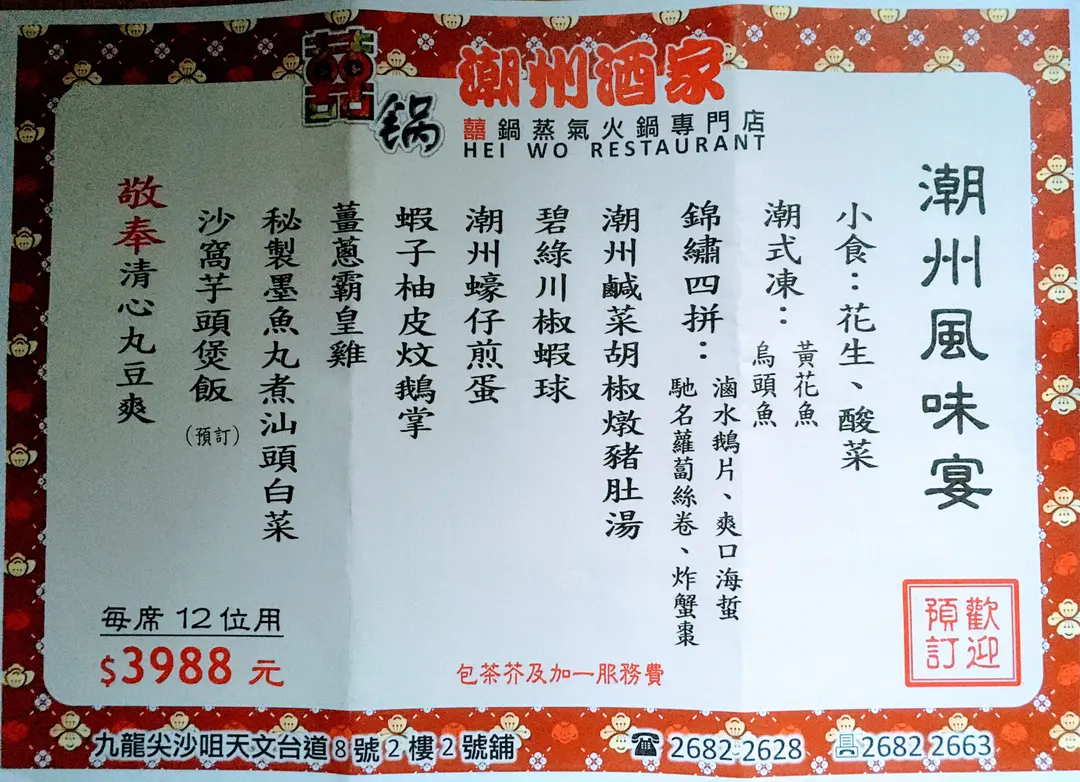 囍
鍋
潮州酒家
囍鍋蒸氣火鍋專門店
HEI WO RESTAURANT
潮州風味宴
小食：花生、酸菜
潮式凍：
黃花魚
烏頭魚
錦繡四拼：
滷水鵝片、爽口海蜇
馳名蘿蔔絲卷、炸蟹棗
潮州鹹菜胡椒燉豬肚湯
碧綠川椒蝦球
潮州蠔仔煎蛋
蝦子柚皮炆鵝掌
薑蔥霸皇雞
秘製墨魚丸煮汕頭白菜
沙窩芋頭煲飯（預訂）
敬奉清心丸豆爽
歡迎
預訂
每席 12 位用
$3988 元
包茶芥及加一服務費
九龍尖沙咀天文台道8號2樓2號舖
☎ 2682 2628
2682 2663